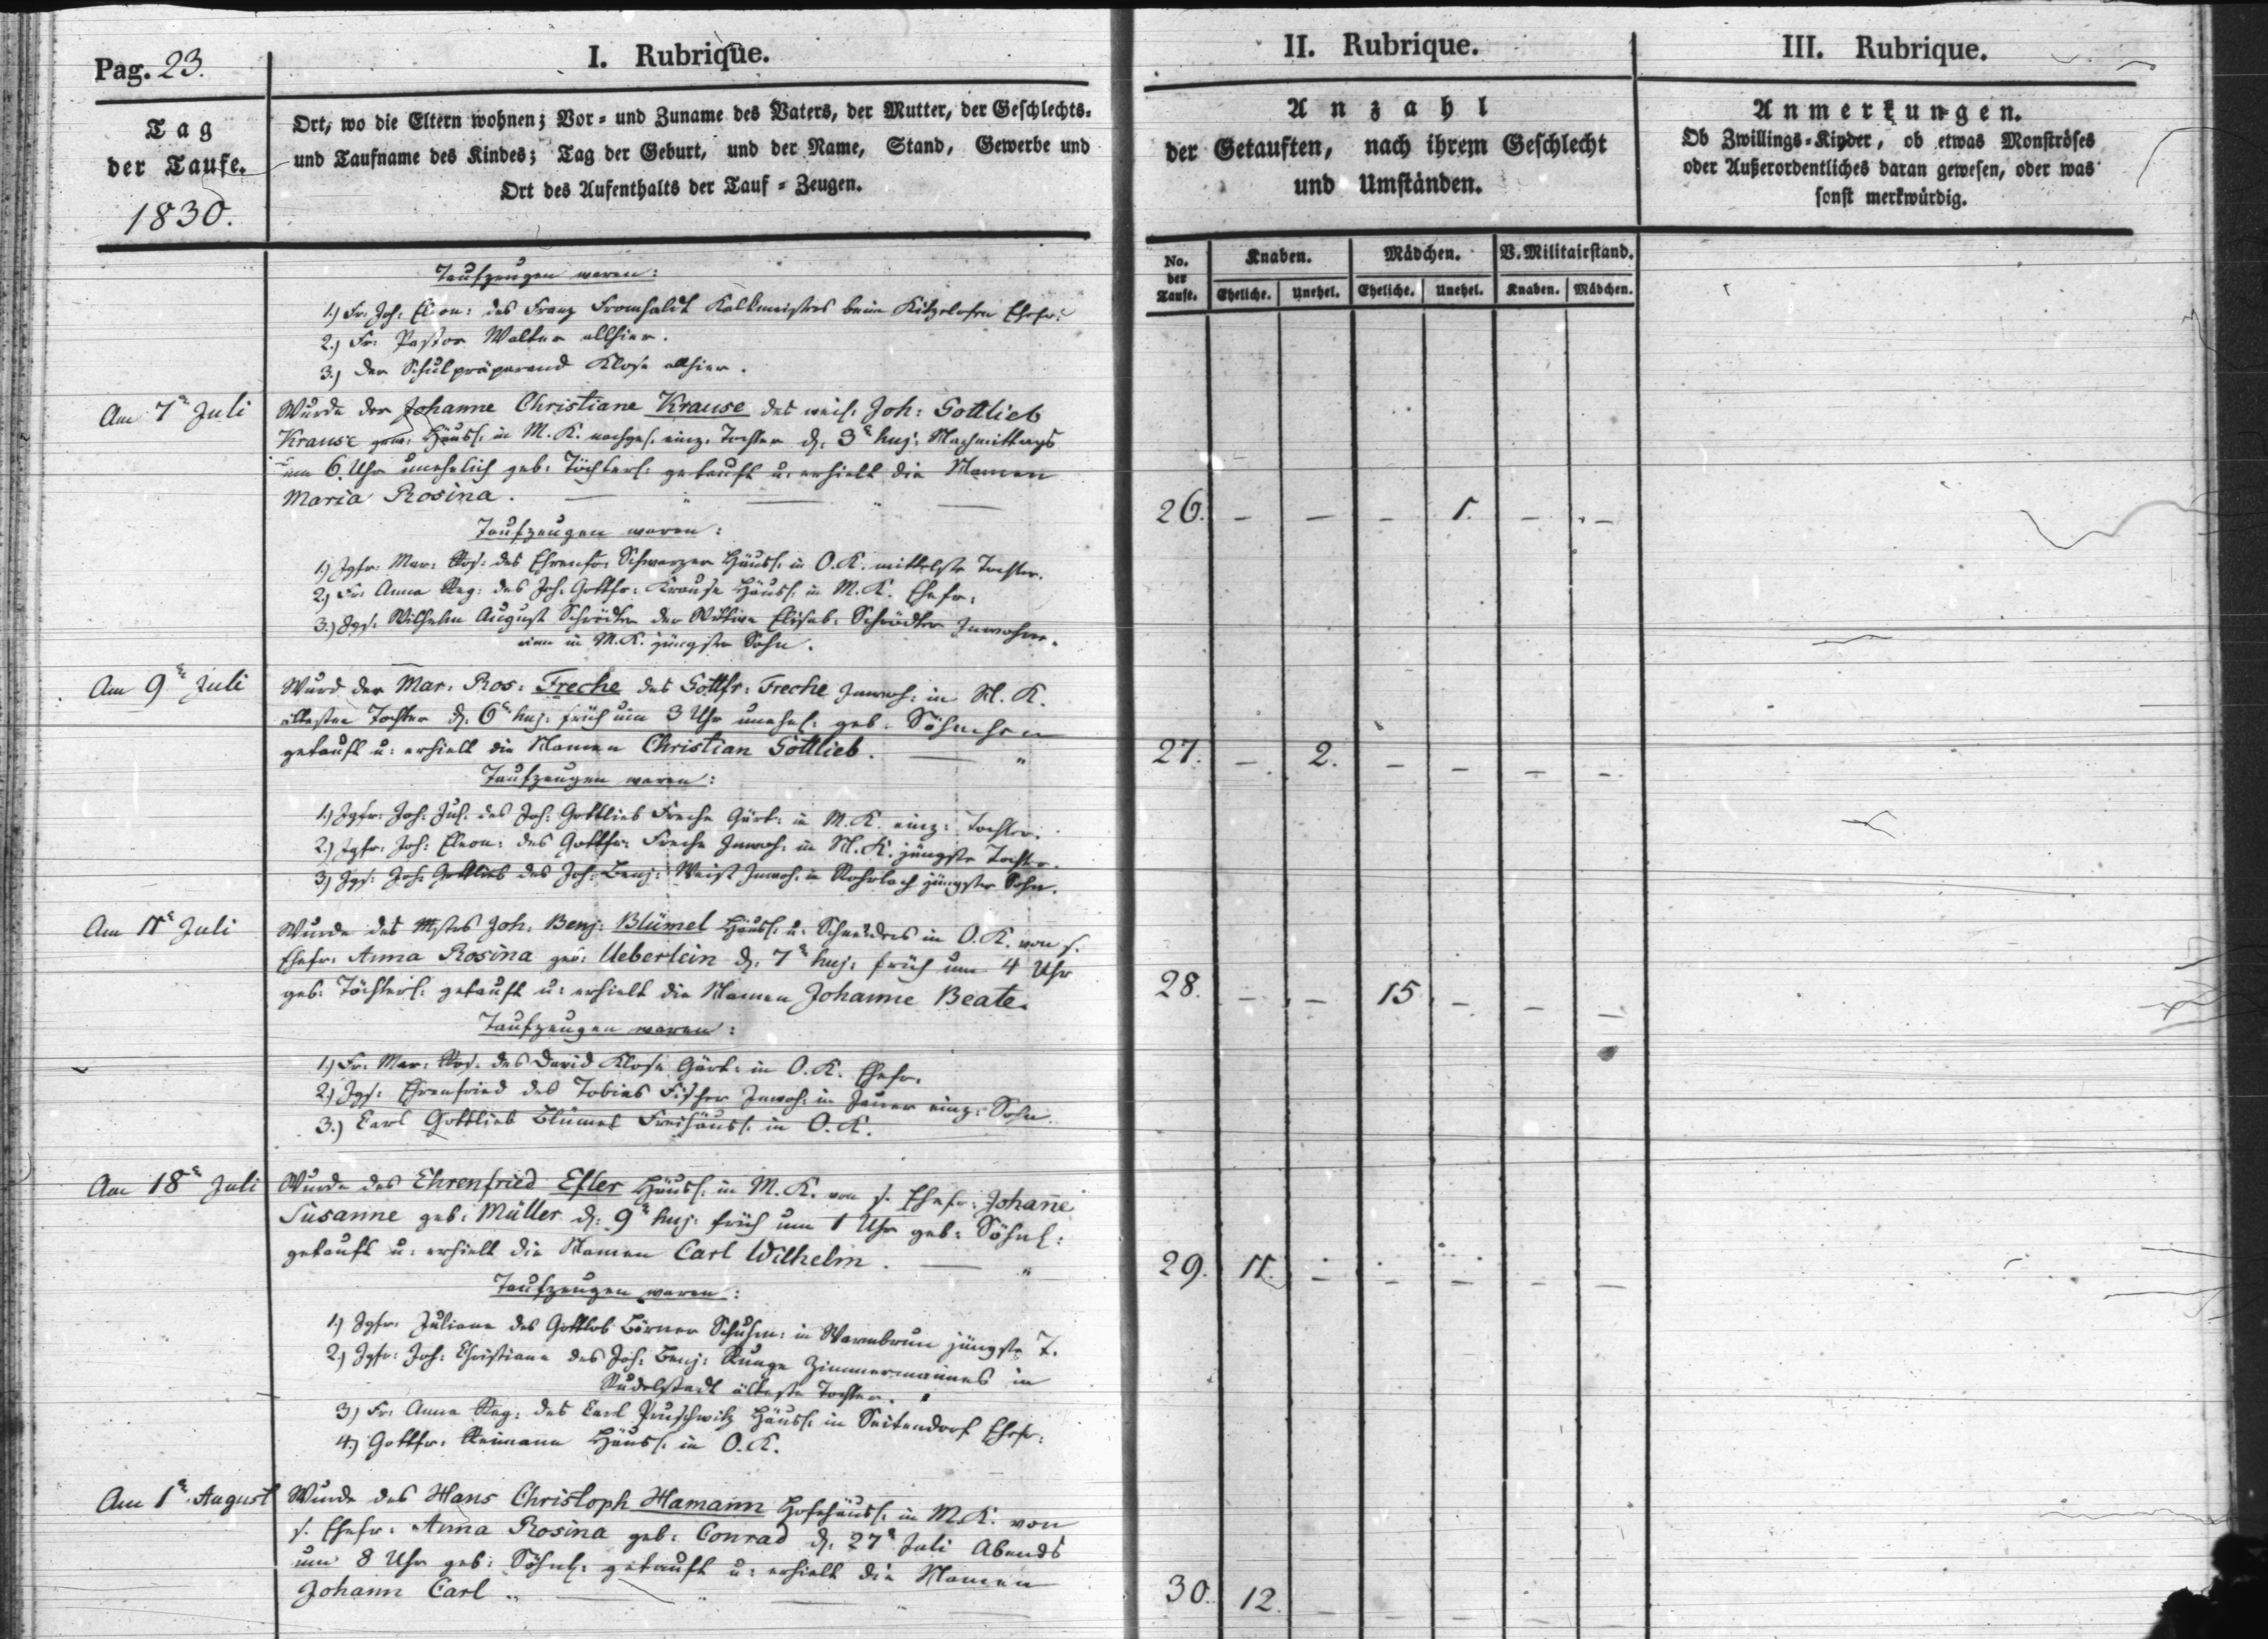 Pag. 23.
I. Rubrique.
II. Rubrique.
III. Rubrique.
Tag
der Taufe.
1830.
Ort, wo die Eltern wohnen; Vor- und Zuname des Vaters, der Mutter, der Geschlechts-
und Taufname des Kindes; Tag der Geburt, und der Name, Stand, Gewerbe und
Ort des Aufenthalts der Tauf-Zeugen.
Anzahl
der Getauften, nach ihrem Geschlecht
und Umständen.
Anmerkungen.
Ob Zwillings-Kinder, ob etwas Monströses
oder Außerordentliches daran gewesen, oder was
sonst merkwürdig.
No. der Taufe.
Knaben.
Mädchen.
V. Militairstand.
Eheliche. Unehel. Eheliche. Unehel. Knaben. Mädchen.
Taufzeugen waren:
1.) Fr. Joh: Eleon: des Franz Kalkmeisters beim Ehefr:
2.) Fr: Pastor Walter allhier.
3.) Der Schulpräparand Klose allhier.
Am 7ⁿ Juli
Wurde der Johanne Christiane Krause des weil. Joh: Gottlieb
Krause gew: Häusl. in M. K. nachgel. einz. Tochter d. 3ⁿ huj: Nachmittags
um 6 Uhr unehelich geb: Töchterl: getauft u. erhielt die Namen
Maria Rosina.
26. – – – 1. – –
Taufzeugen waren:
1.) Jgfr: Mar: Ros: des Ehrenfr: Schwarzer Häusl. in O. K. mittelste Tochter.
2.) Fr: Anna Reg: des Joh: Gottfr: Krause Häusl. in M. K. Ehefr.
3.) Jgs: Wilhelm August Schrödter der Wittwe Elisab: Schrödter Inwohne-
rinn in M. K. jüngster Sohn.
Am 9ⁿ Juli
Wurd der Mar. Ros: Freche des Gottfr: Freche Inwoh: in M. K.
ältesten Tochter d. 6ⁿ huj: früh um 3 Uhr unehel: geb. Söhnchen
getauft u: erhielt die Namen Christian Gottlieb.
27. – 2. – – – –
Taufzeugen waren:
1.) Jgfr: Joh: Jul. des Joh: Gottlieb Freche Gärt: in M. K. einz: Tochter.
2.) Jgfr: Joh: Eleon: des Gottfr: Freche Inwoh: in M. K. jüngste Tochter.
3.) Jgs: Joh: Gottlieb des Joh: Benj: Weist Inwoh: in Rohrlach jüngster Sohn.
Am 11ⁿ Juli
Wurde des Mstrs Joh: Benj: Blümel Häusl. u: Schneiders in O. K. von s.
Ehefr: Anna Rosina geb: Ueberlein d. 7ⁿ huj: früh um 4 Uhr
geb: Töchterl: getauft u: erhielt die Namen Johanne Beate.
28. – – 15 – – –
Taufzeugen waren:
1.) Fr: Mar: Ros: des David Klose Gärt: in O. K. Ehefr.
2.) Jgs: Ehrenfried des Tobias Fischer Inwoh: in Jauer einz: Sohn.
3.) Carl Gottlieb Blümel Freihäusl. in O. K.
Am 18ⁿ Juli
Wurde des Ehrenfried Efler Häusl: in M. K. von s. Ehefr: Johañe
Susanne geb: Müller d: 9ⁿ huj: früh um 1 Uhr geb: Söhnl:
getauft u: erhielt die Namen Carl Wilhelm.
29. 11. – – – – –
Taufzeugen waren:
1.) Jgfr: Juliane des Gottlob Börner Schuhm: in Warmbrun jüngste T.
2.) Jgfr: Joh: Christiane des Joh: Benj: Runge Zimmermannes in
Rudelstadt älteste Tochter.
3.) Fr: Anna Reg: des Carl Pruschwitz Häusl. in Seitendorf Ehefr:
4.) Gottfr: Reimann Häusl. in O. K.
Am 1ⁿ August
Wurde des Hans Christoph Hamann Hofehäusl. in M. K. von
s. Ehefr: Anna Rosina geb: Conrad d. 27ⁿ Juli Abends
um 8 Uhr geb: Söhnl: getauft u: erhielt die Namen
Johann Carl
30. 12. – – – –